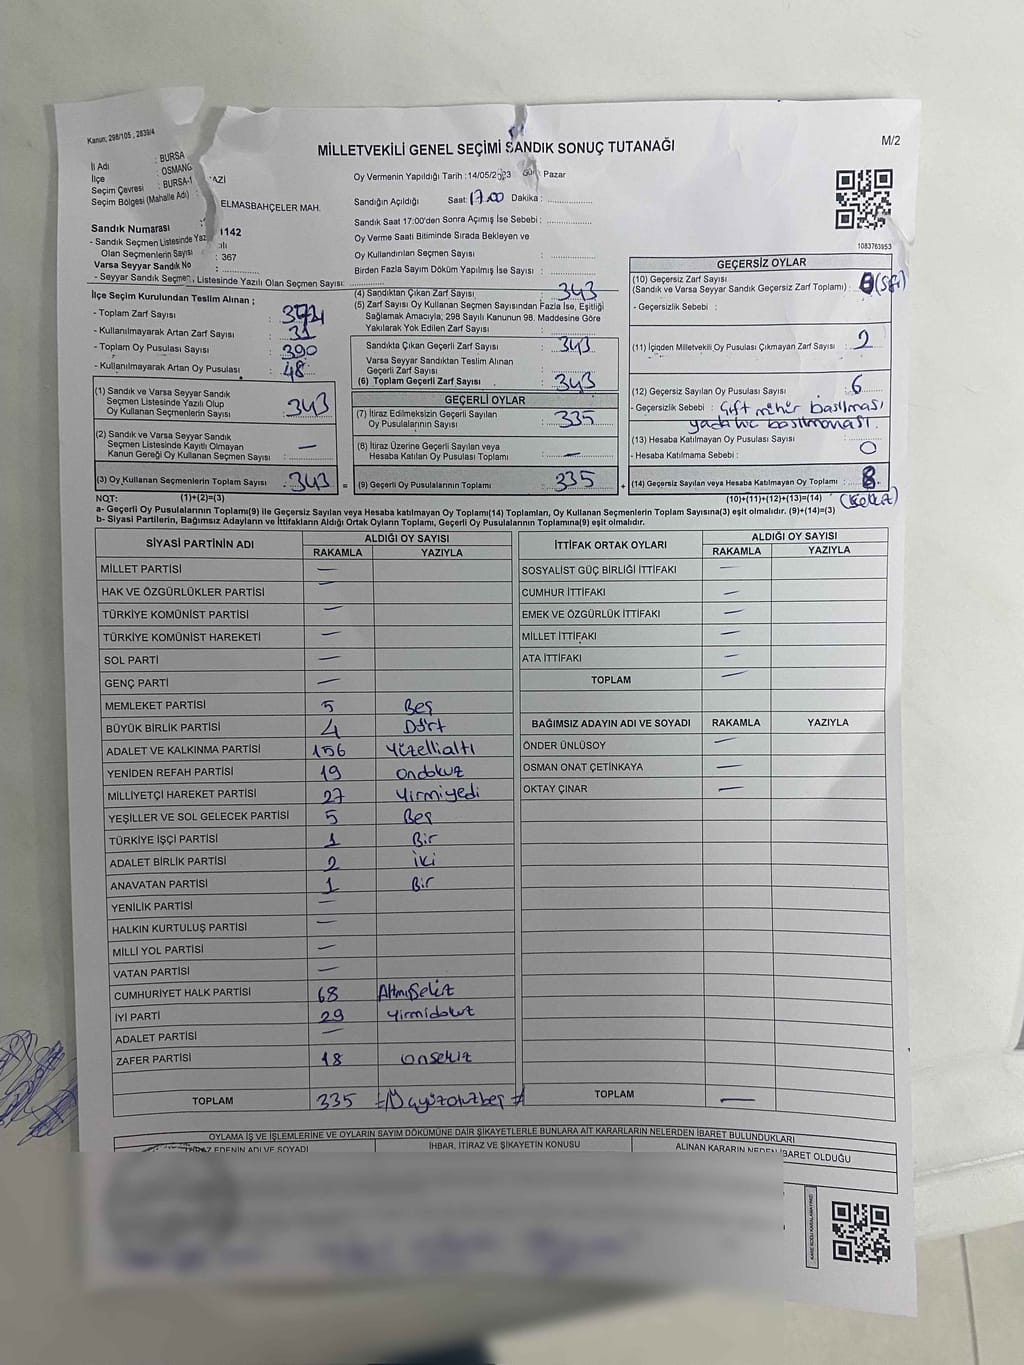 Kanun, 298/105 , 2839/4
MİLLETVEKİLİ GENEL SEÇİMİ SANDIK SONUÇ TUTANAĞI
M/2
İl Adı : BURSA
İlçe : OSMANG AZİ
Seçim Çevresi : BURSA-1
Seçim Bölgesi (Mahalle Adı) : ELMASBAHÇELER MAH.
Sandık Numarası : 1142
- Sandık Seçmen Listesinde Yaz ılı
Olan Seçmenlerin Sayısı : 367
Varsa Seyyar Sandık No : ............
- Seyyar Sandık Seçmen Listesinde Yazılı Olan Seçmen Sayısı:
Oy Vermenin Yapıldığı Tarih :14/05/2023 Gün Pazar
Sandığın Açıldığı Saat: 17.00 Dakika :
Sandık Saat 17:00'den Sonra Açımış İse Sebebi :
Oy Verme Saati Bitiminde Sırada Bekleyen ve
Oy Kullandırılan Seçmen Sayısı :
Birden Fazla Sayım Döküm Yapılmış İse Sayısı :
1083763953
İlçe Seçim Kurulundan Teslim Alınan ;
- Toplam Zarf Sayısı : 374
- Kullanılmayarak Artan Zarf Sayısı : 31
- Toplam Oy Pusulası Sayısı : 390
- Kullanılmayarak Artan Oy Pusulası : 48
(1) Sandık ve Varsa Seyyar Sandık
Seçmen Listesinde Yazılı Olup
Oy Kullanan Seçmenlerin Sayısı : 343
(2) Sandık ve Varsa Seyyar Sandık
Seçmen Listesinde Kayıtlı Olmayan
Kanun Gereği Oy Kullanan Seçmen Sayısı : —
(3) Oy Kullanan Seçmenlerin Toplam Sayısı : 343
(4) Sandıktan Çıkan Zarf Sayısı : 343
(5) Zarf Sayısı Oy Kullanan Seçmen Sayısından Fazla İse, Eşitliği
Sağlamak Amacıyla; 298 Sayılı Kanunun 98. Maddesine Göre
Yakılarak Yok Edilen Zarf Sayısı :
Sandıkta Çıkan Geçerli Zarf Sayısı : 343
Varsa Seyyar Sandıktan Teslim Alınan
Geçerli Zarf Sayısı :
(6) Toplam Geçerli Zarf Sayısı : 343
GEÇERLİ OYLAR
(7) İtiraz Edilmeksizin Geçerli Sayılan
Oy Pusulalarının Sayısı : 335
(8) İtiraz Üzerine Geçerli Sayılan veya
Hesaba Katılan Oy Pusulası Toplamı : —
= (9) Geçerli Oy Pusulalarının Toplamı : 335 +
GEÇERSİZ OYLAR
(10) Geçersiz Zarf Sayısı
(Sandık ve Varsa Seyyar Sandık Geçersiz Zarf Toplamı) : 0 (sıfır)
- Geçersizlik Sebebi :
(11) İçinden Milletvekili Oy Pusulası Çıkmayan Zarf Sayısı : 2
(12) Geçersiz Sayılan Oy Pusulası Sayısı : 6
- Geçersizlik Sebebi : Çift mühür basılması
yada hiç basılmaması.
(13) Hesaba Katılmayan Oy Pusulası Sayısı : 0
- Hesaba Katılmama Sebebi :
(14) Geçersiz Sayılan veya Hesaba Katılmayan Oy Toplamı : 8
(sekiz)
NOT: (1)+(2)=(3) (10)+(11)+(12)+(13)=(14)
a- Geçerli Oy Pusulalarının Toplamı(9) ile Geçersiz Sayılan veya Hesaba katılmayan Oy Toplamı(14) Toplamları, Oy Kullanan Seçmenlerin Toplam Sayısına(3) eşit olmalıdır. (9)+(14)=(3)
b- Siyasi Partilerin, Bağımsız Adayların ve İttifakların Aldığı Ortak Oyların Toplamı, Geçerli Oy Pusulalarının Toplamına(9) eşit olmalıdır.
SİYASİ PARTİNİN ADI ALDIĞI OY SAYISI
RAKAMLA YAZIYLA
MİLLET PARTİSİ —
HAK VE ÖZGÜRLÜKLER PARTİSİ —
TÜRKİYE KOMÜNİST PARTİSİ —
TÜRKİYE KOMÜNİST HAREKETİ —
SOL PARTİ —
GENÇ PARTİ —
MEMLEKET PARTİSİ 5 Beş
BÜYÜK BİRLİK PARTİSİ 4 Dört
ADALET VE KALKINMA PARTİSİ 156 Yüzellialtı
YENİDEN REFAH PARTİSİ 19 ondokuz
MİLLİYETÇİ HAREKET PARTİSİ 27 Yirmiyedi
YEŞİLLER VE SOL GELECEK PARTİSİ 5 Beş
TÜRKİYE İŞÇİ PARTİSİ 1 Bir
ADALET BİRLİK PARTİSİ 2 iki
ANAVATAN PARTİSİ 1 Bir
YENİLİK PARTİSİ —
HALKIN KURTULUŞ PARTİSİ —
MİLLİ YOL PARTİSİ —
VATAN PARTİSİ —
CUMHURİYET HALK PARTİSİ 68 Altmışsekiz
İYİ PARTİ 29 Yirmidokuz
ADALET PARTİSİ —
ZAFER PARTİSİ 18 onsekiz
TOPLAM 335 #Üçyüzotuzbeş#
İTTİFAK ORTAK OYLARI ALDIĞI OY SAYISI
RAKAMLA YAZIYLA
SOSYALİST GÜÇ BİRLİĞİ İTTİFAKI —
CUMHUR İTTİFAKI —
EMEK VE ÖZGÜRLÜK İTTİFAKI —
MİLLET İTTİFAKI —
ATA İTTİFAKI —
TOPLAM —
BAĞIMSIZ ADAYIN ADI VE SOYADI RAKAMLA YAZIYLA
ÖNDER ÜNLÜSOY —
OSMAN ONAT ÇETİNKAYA —
OKTAY ÇINAR —
TOPLAM —
OYLAMA İŞ VE İŞLEMLERİNE VE OYLARIN SAYIM DÖKÜMÜNE DAİR ŞİKAYETLERLE BUNLARA AİT KARARLARIN NELERDEN İBARET BULUNDUKLARI
İTİRAZ EDENİN ADI VE SOYADI İHBAR, İTİRAZ VE ŞİKAYETİN KONUSU ALINAN KARARIN NEDEN İBARET OLDUĞU